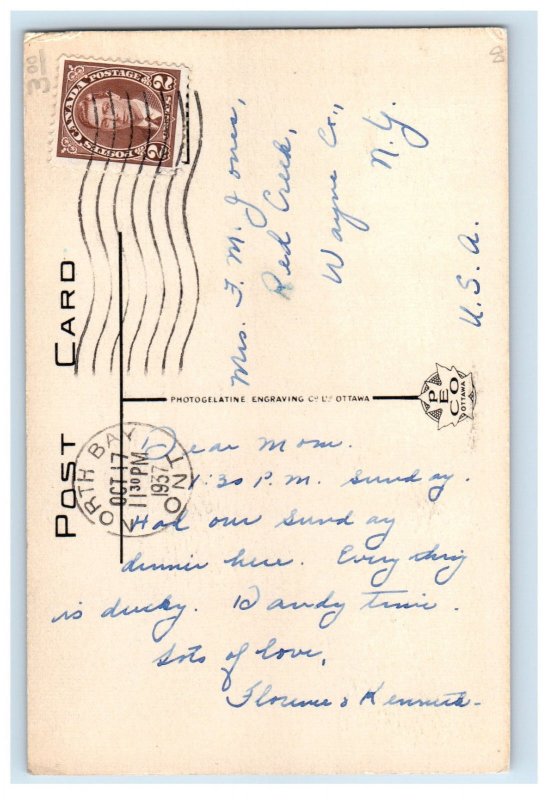 3.00
CANADA POSTAGE
2
POSTES CANADA
2
POST CARD
NORTH BAY
OCT 17
11 30 PM
1937
ONT
Mrs. F. M. Jones,
Red Creek,
Wayne Co.,
N.Y.
U.S.A.
PHOTOGELATINE ENGRAVING CO LTD OTTAWA
PECO
OTTAWA
Dear Mom.
1:30 P.M. Sunday.
Had our Sunday
dinner here. Everything
is ducky. Dandy time.
Lots of love,
Florence & Kenneth.